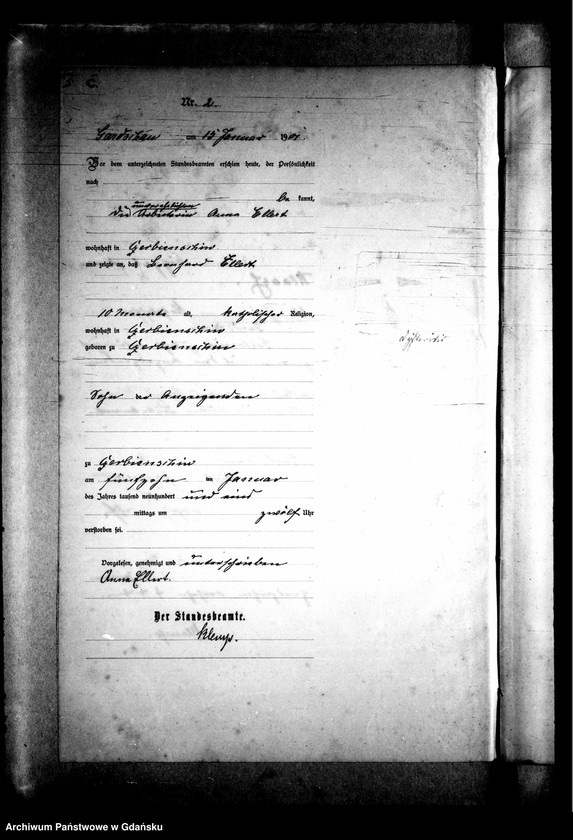 Nr. 2.
Gardschau am 15 Januar 1901
Vor dem unterzeichneten Standesbeamten erschien heute, der Persönlichkeit
nach
be kannt,
unverehelichte
die Arbeiterin Anna Ellert
wohnhaft in Gerbienschin
und zeigte an, daß Bernhard Ellert
10 Monate alt, katholischer Religion,
wohnhaft in Gerbienschin
geboren zu Gerbienschin
Sohn der Anzeigenden
zu Gerbienschin
am fünfzehn im Januar
des Jahres tausend neunhundert und eins
mittags um zwölf Uhr
verstorben sei.
Vorgelesen, genehmigt und unterschrieben
Anna Ellert.
Der Standesbeamte.
Archiwum Państwowe w Gdańsku